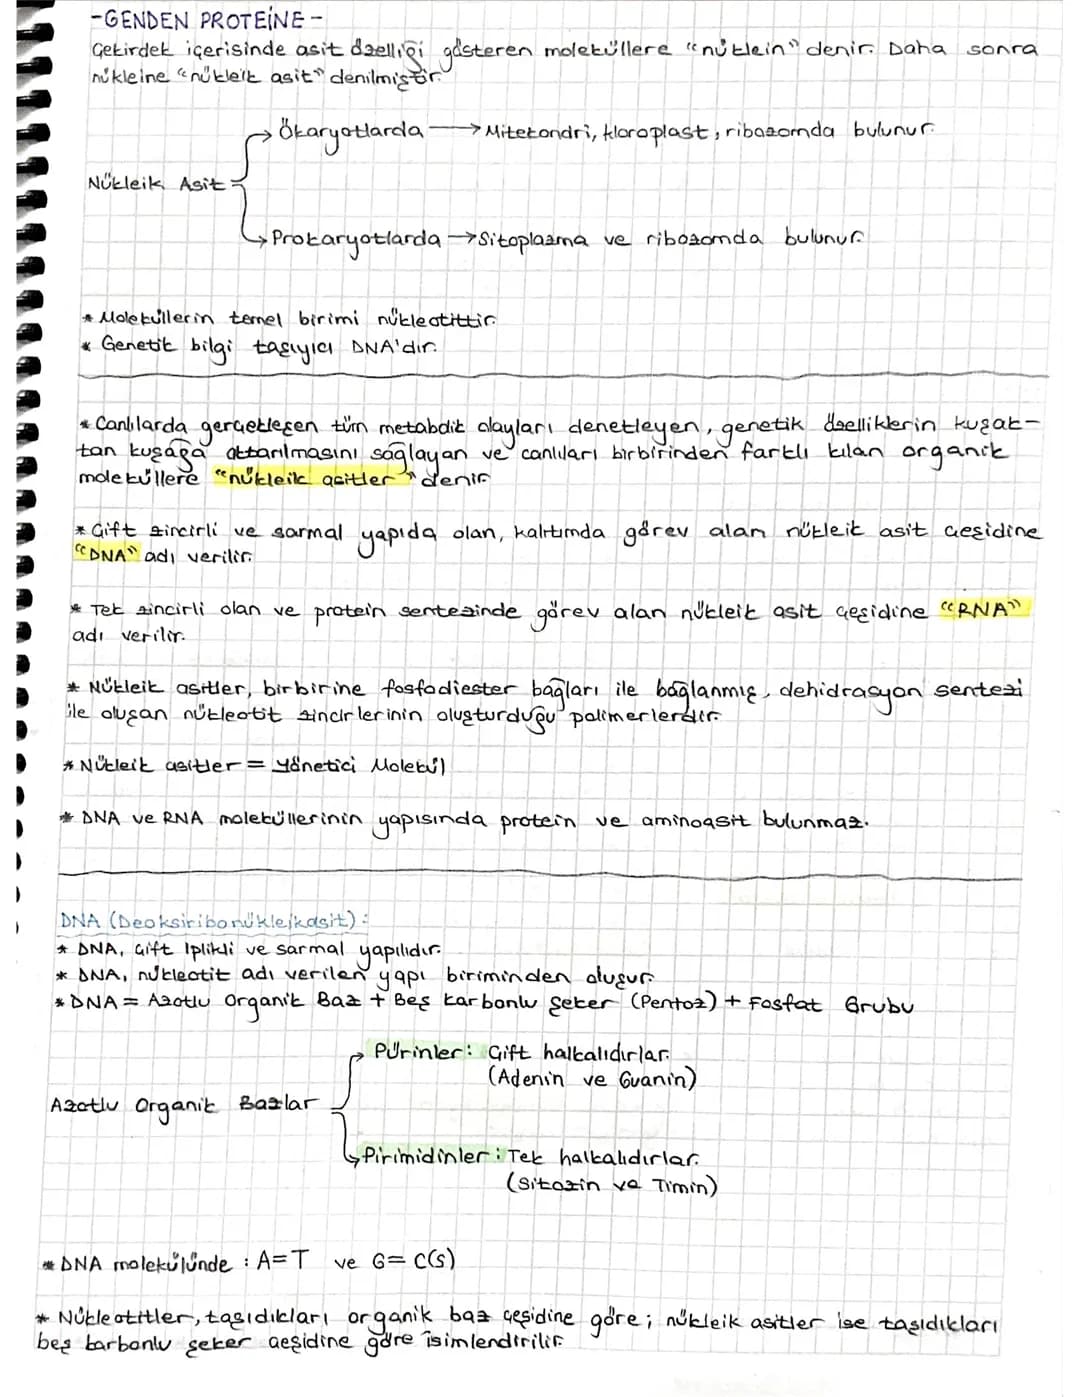 -GENDEN PROTEİNE-
Çekirdek içerisinde asit özelliği gösteren moleküllere "nüklein" denir. Daha sonra
nükleine "nükleik asit" denilmiştir.
Ökaryotlarda → Mitekondri, kloroplast, ribozomda bulunur.
Nükleik Asit
Prokaryotlarda → Sitoplazma ve ribozomda bulunur.
* Moleküllerin temel birimi nükleotittir.
* Genetik bilgi taşıyıcı DNA'dır.
* Canlılarda gerçekleşen tüm metabolik olayları denetleyen, genetik özelliklerin kuşak-
tan kuşağa aktarılmasını sağlayan ve canlıları birbirinden farklı kılan organik
moleküllere "nükleik asitler" denir.
* Çift zincirli ve sarmal yapıda olan, kalıtımda görev alan nükleik asit çeşidine
"DNA" adı verilir.
* Tek zincirli olan ve protein sentezinde görev alan nükleik asit çeşidine "RNA"
adı verilir.
* Nükleik asitler, birbirine fosfodiester bağları ile bağlanmış, dehidrasyon sentezi
ile oluşan nükleotit zincirlerinin oluşturduğu polimerlerdir.
* Nükleik asitler = Yönetici Molekül
* DNA ve RNA moleküllerinin yapısında protein ve aminoasit bulunmaz.
DNA (Deoksiribonükleikasit):
* DNA, Çift İplikli ve sarmal yapılıdır.
* DNA, nükleotit adı verilen yapı biriminden oluşur.
* DNA = Azotlu Organik Baz + Beş karbonlu şeker (Pentoz) + Fosfat Grubu
Pürinler: Çift halkalıdırlar.
(Adenin ve Guanin)
Azotlu Organik Bazlar
Pirimidinler: Tek halkalıdırlar.
(Sitozin ve Timin)
* DNA molekülünde : A=T ve G=C(S)
* Nükleotitler, taşıdıkları organik baz çeşidine göre; nükleik asitler ise taşıdıkları
beş karbonlu şeker çeşidine göre isimlendirilir.